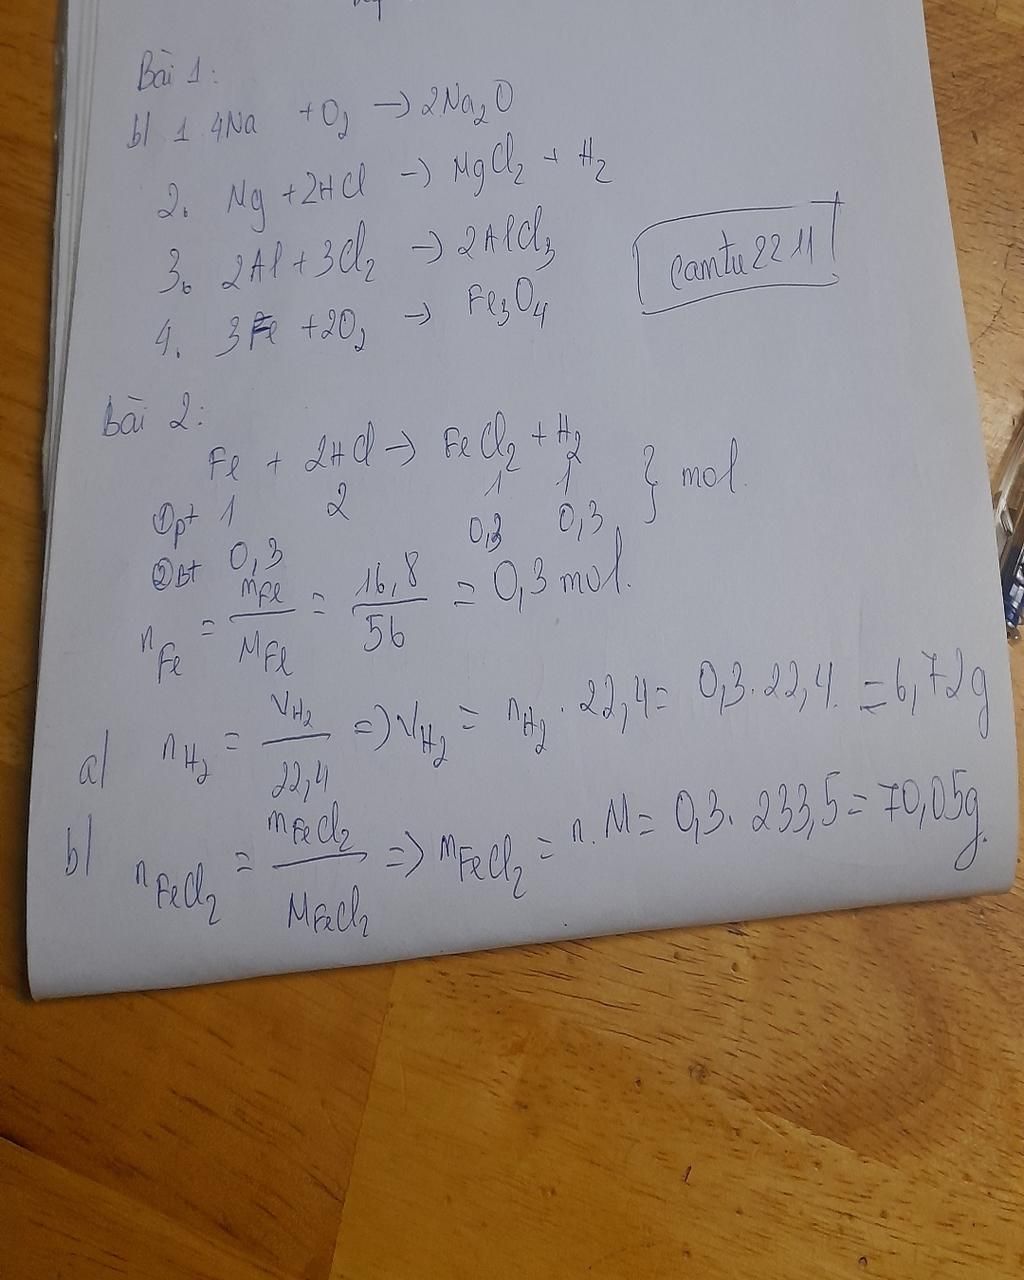 Bài 1:
b) 1. 4Na + O₂ → 2Na₂O
2. Mg + 2HCl → MgCl₂ + H₂
3. 2Al + 3Cl₂ → 2AlCl₃
camtu2211
4. 3Fe + 2O₂ → Fe₃O₄
Bài 2:
Fe + 2HCl → FeCl₂ + H₂
① pt 1 2 1 1 } mol.
② Bt 0,3 0,3 0,3
n Fe = mFe / MFe = 16,8 / 56 = 0,3 mol.
a) nH₂ = VH₂ / 22,4 => VH₂ = nH₂ . 22,4 = 0,3 . 22,4 = 6,72g
b) nFeCl₂ = mFeCl₂ / MFeCl₂ => mFeCl₂ = n. M = 0,3. 233,5 = 70,05g.